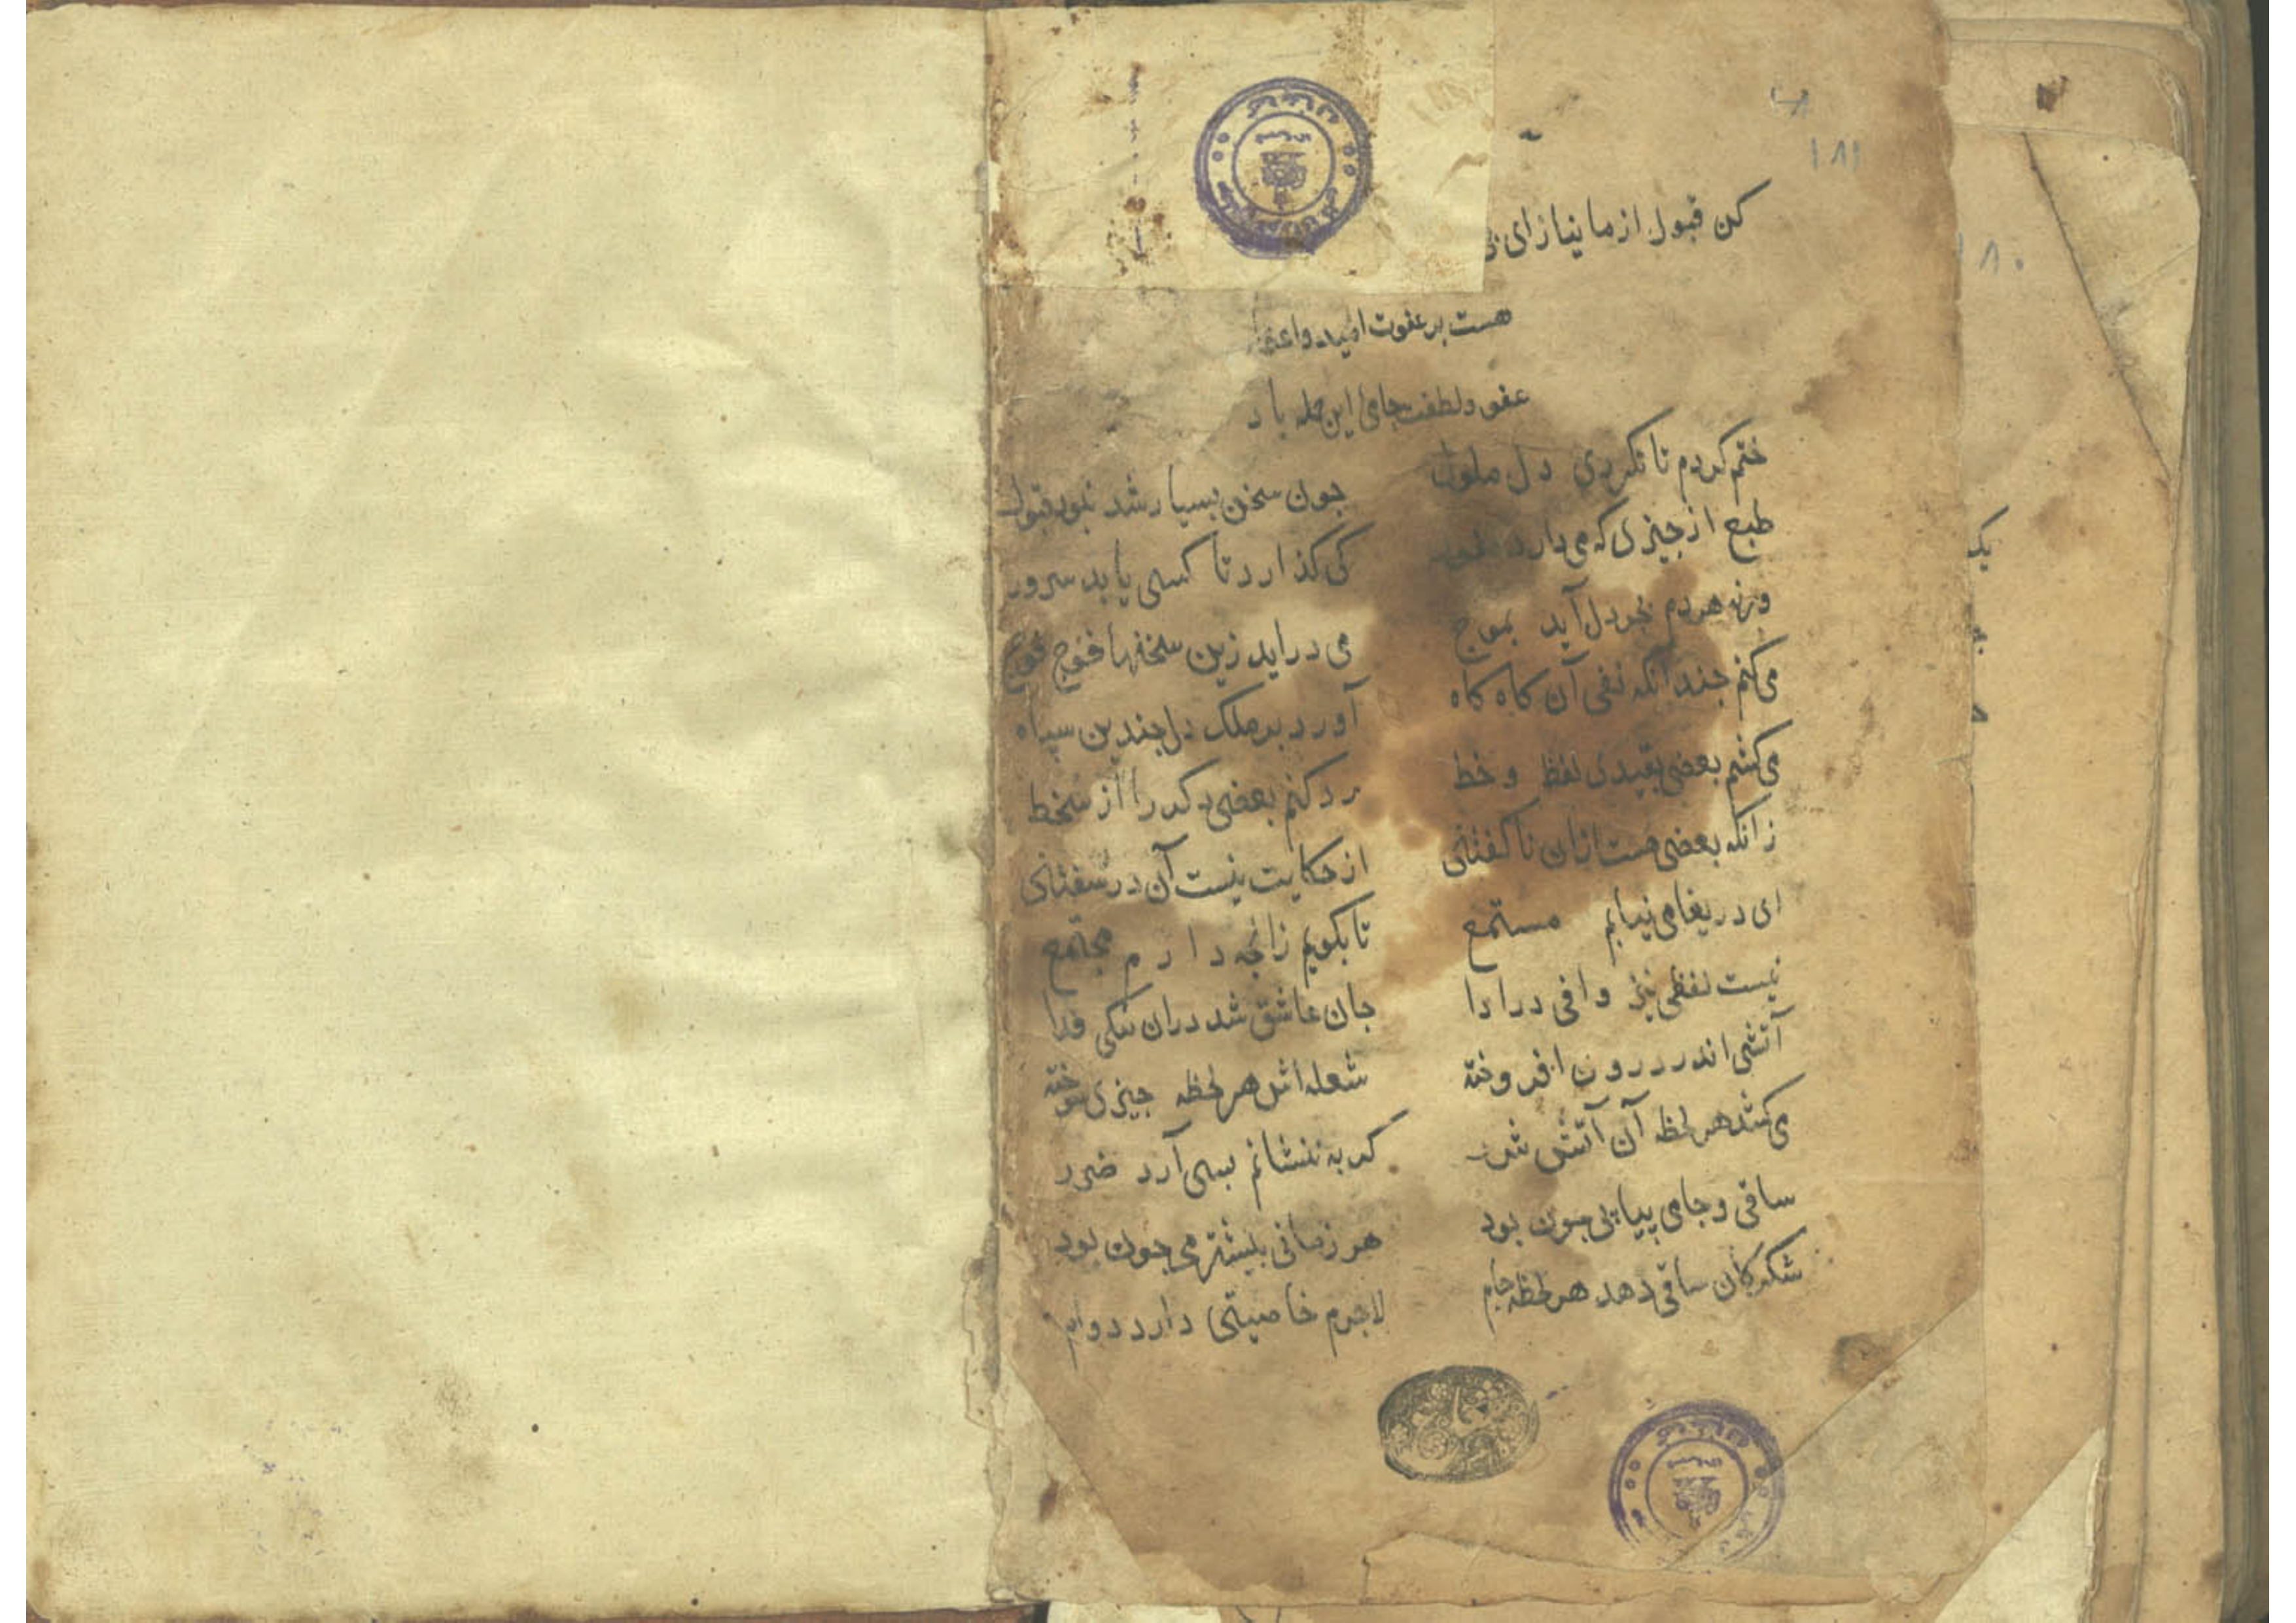 ۱۸۱
کن قبول از ما نیاز ای
هست بر عفوت امید و
عفو و لطفت حامی این جمله باد
ختم کردم تا نکردی دل ملول
چون سخن بسیار شد نبود قبول
طبع از چیزی که می دارد
کی کذارد تا کسی یابد سرور
ورنه هردم بحر دل آید بموج
می دراید زین سخنها فوج فوج
می کنم چندانکه نفی آن کاه کاه
آورد بر ملک دل چندین سپاه
می کشم بعضی بقیدی لفظ و خط
رد کنم بعضی دکر را از سخط
زانکه بعضی هست ازان ناکفتنی
از حکایت نیست آن در سفتنی
ای دریغا می نیابم مستمع
تا بکویم زانچه دارم مجتمع
نیست لفظی نیز وافی در ادا
جان عاشق شد دران تنکی فدا
آتشی اندر درون افروخته
شعله اش هر لحظه چیزی سوخته
می کشد هر لحظه آن آتش شرر
کر به ننشانم بسی آرد ضرر
ساقی و جامی پیاپی چون بود
هر زمانی بیشتر می چون بود
شکر کان ساقی دهد هر لحظه جام
لاجرم خاصیتی دارد دوام
۱۸۰
یک